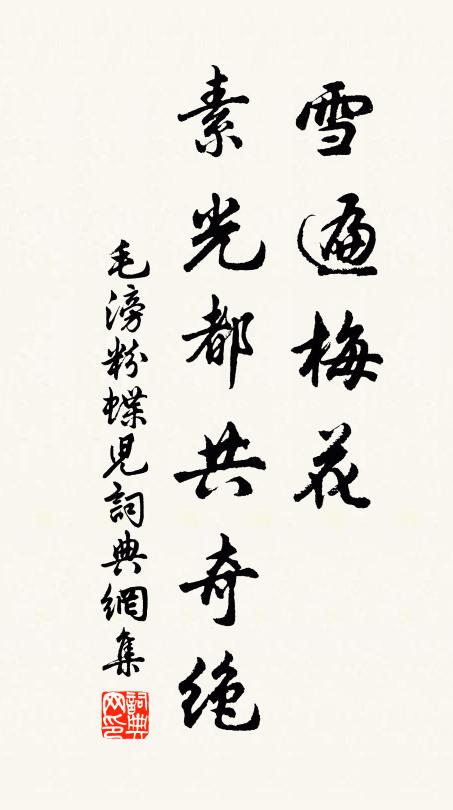 雪遍梅花
素光都共奇絶
毛滂粉蝶児詞典網集
詞典網印